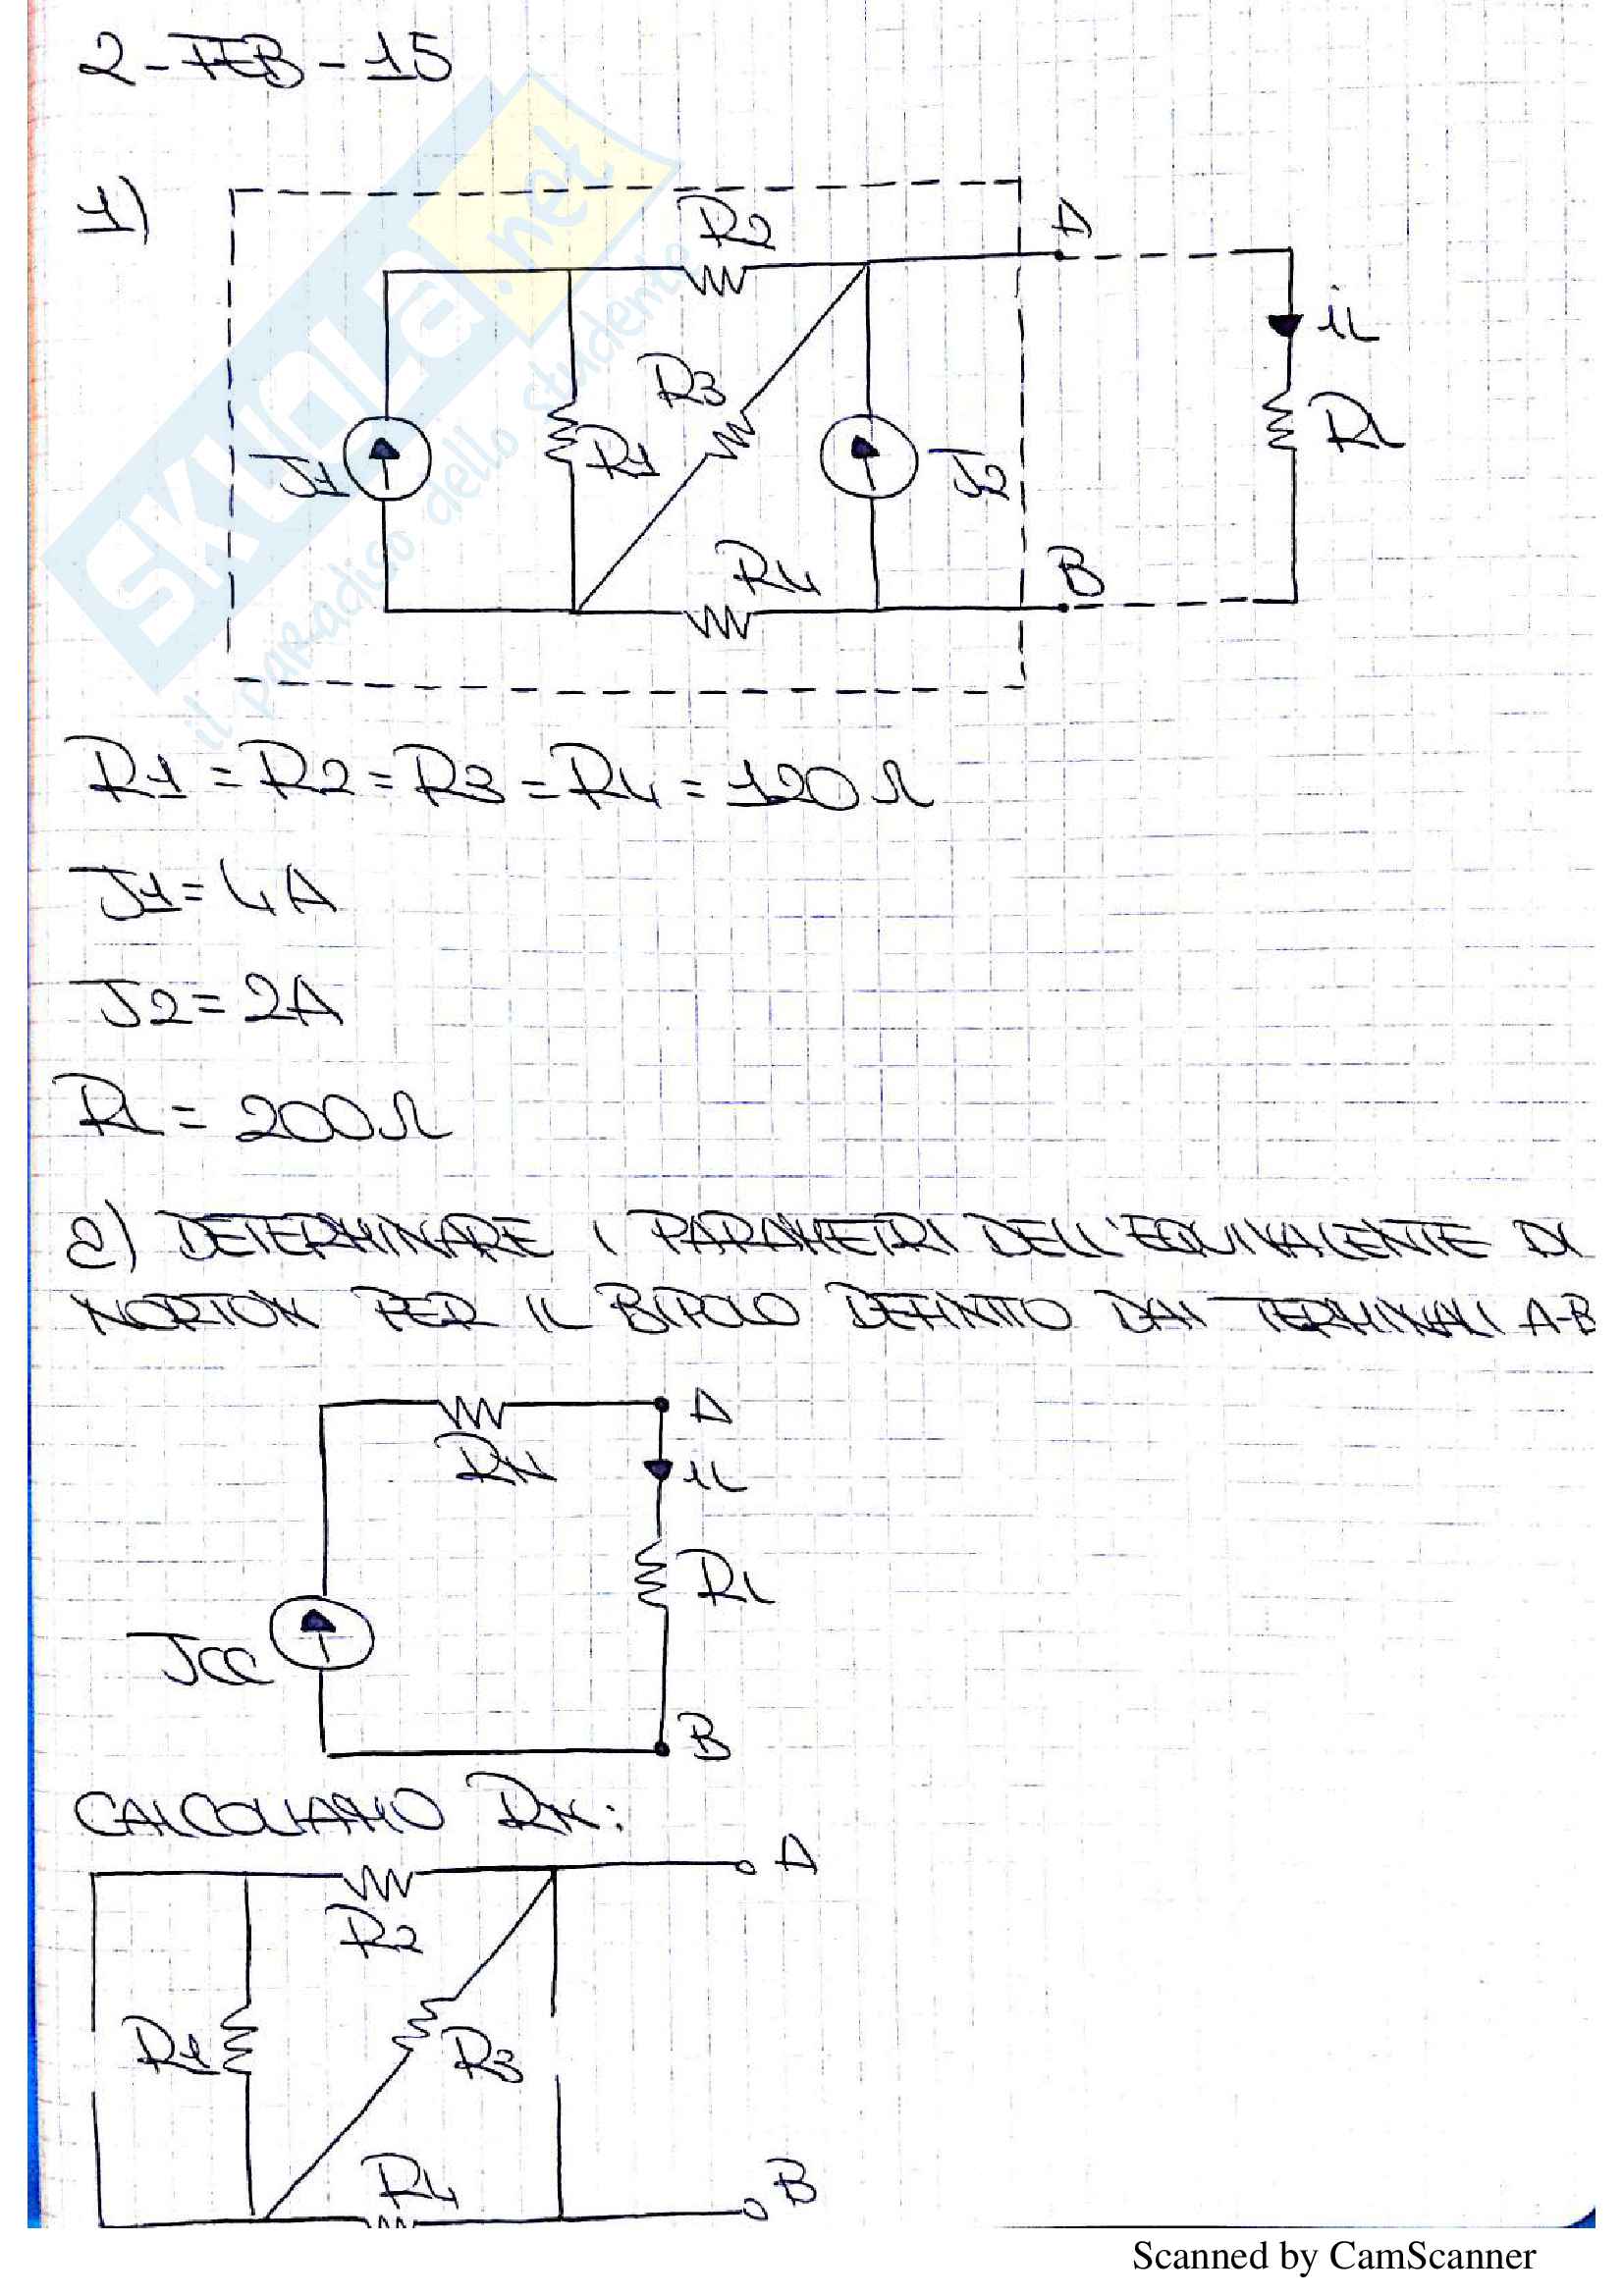 2-FEB-15
1)
R2
A
iL
R3
J1
R1
J2
RL
R4
B
R1=R2=R3=R4=120Ω
J1=4A
J2=2A
RL=200Ω
2) DETERMINARE I PARAMETRI DELL'EQUIVALENTE DI
NORTON PER IL BIPOLO DEFINITO DAI TERMINALI A-B
A
RN
iL
RL
JCC
B
CALCOLIAMO RN:
A
R2
R1
R3
R4
B
SKUOLa.net
il paradiso dello studente
Scanned by CamScanner